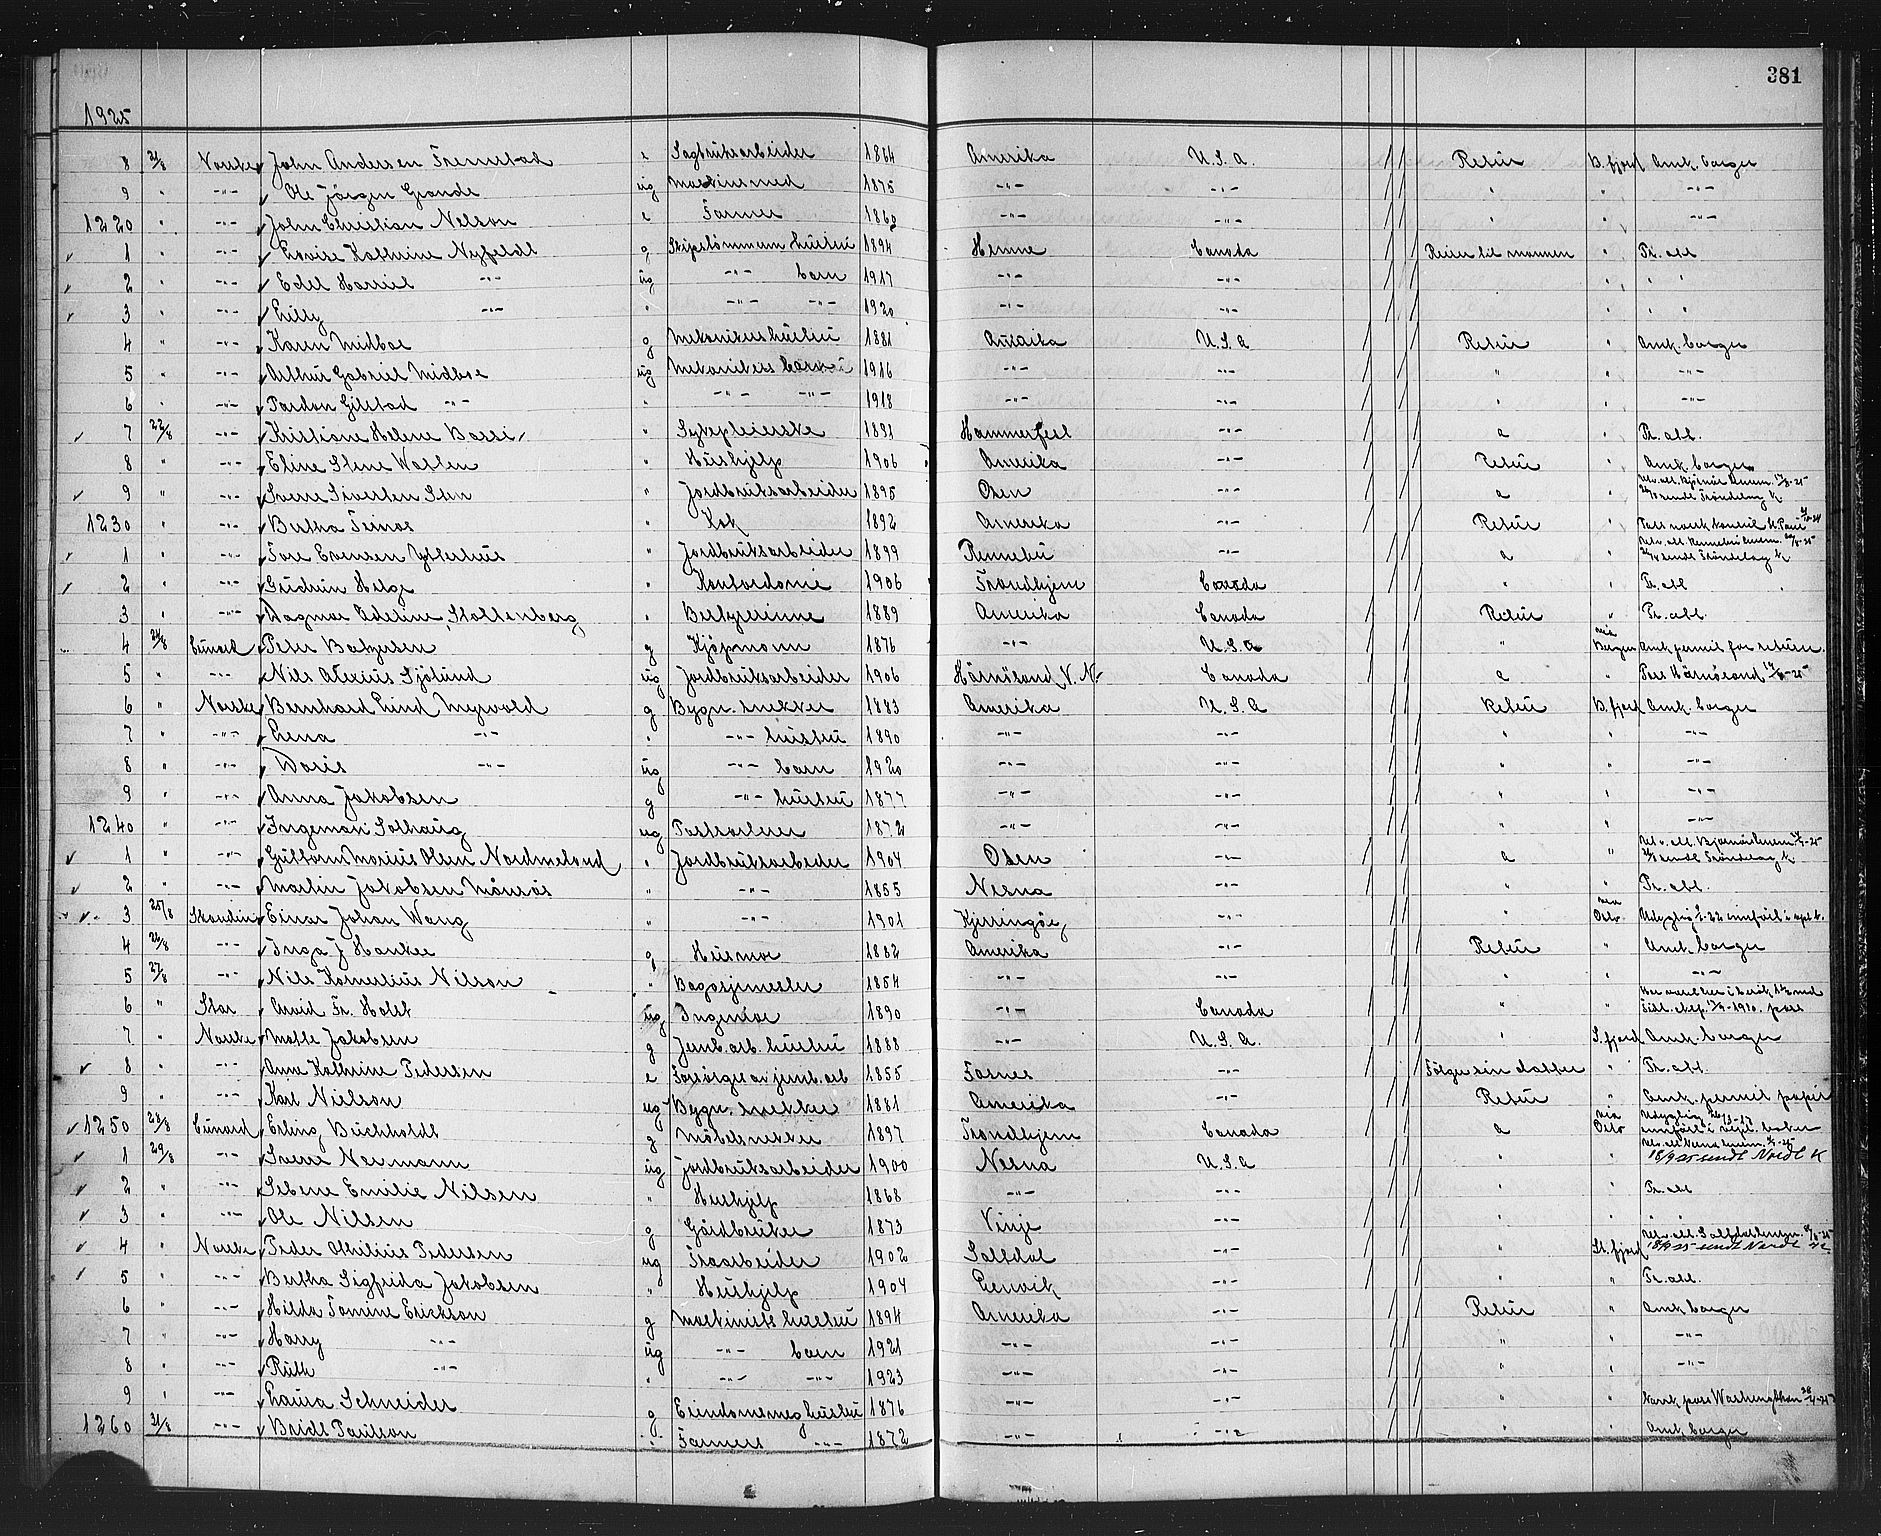 381
1925
8 21/8 Norske John Andersen Fremstad e Sagbruksarbeider 1864 Amerika U.S.A. Retur B.fjord Amk. borger
9 " -"- Ole Jörgen Grande ug Maskinsmed 1875 -"- -"- " " -"-
1220 " -"- John Christian Nelson e Farmer -"- -"- " " -"-
1 " -"- Nyfeldt g Skipstömmerm. hustru 1894 Hemne Canada Reiser til mannen " Tr. att
2 " -"- Edel Harriet -"- ug -"- barn 1917 -"- -"- " " "
3 " -"- -"- " -"- -"- 1920 -"- -"- " " "
4 " -"- Karen Midboe g Mekanikers hustru 1881 Amerika U.S.A Retur " Amk. borger
5 " -"- Arthur Gabriel Midboe ug Mekanikers barn 1916 -"- -"- " " -"-
6 " -"- Gilstad -"- " -"- -"- 1918 -"- -"- " " -"-
7 22/8 -"- Kristiane Helene " Sykepleierske 1891 Hammerfest -"- a " Tr. att.
8 " -"- Eline Stene " Hushjelp 1906 Amerika -"- Retur " Amk. borger
9 " -"- Sverre Sivertsen Sten " Jordbruksarbeider 1895 Osen -"- a "
1230 " -"- Bertha " Kok 1892 Amerika -"- Retur " Pass norsk konsul St. Paul
1 " -"- Tore Evensen Ytterhus " Jordbruksarbeider 1899 Rennebu -"- a "
2 " -"- Gudrun Helge " Kontordame 1906 Trondhjem Canada " " Tr. att
3 " -"- Dagmar Adeline Stoltenberg " Bestyrerinne 1889 Amerika Canada Retur " Tr. att.
4 24/8 Cunard Peter g Kjöpmann 1876 -"- U.S.A " via Bergen Amk permit for return.
5 " -"- Nils Alexius Sjölund ug Jordbruksarbeider 1906 Härnösand V.N. Canada a " Pass Härnösand
6 " Norske Bernhard Lund Myrvold g Bygn. snekker 1883 Amerika U.S.A Retur B.fjord Amk. borger
7 " -"- Lena -"- " -"- hustru 1890 -"- -"- " " -"-
8 " -"- Doris -"- ug -"- barn 1920 -"- -"- " " -"-
9 " -"- Anna Jakobsen g -"- hustru 1877 -"- -"- " " -"-
1240 " -"- Ingeman Solhaug ug 1872 -"- -"- " " -"-
1 " -"- Guttorm Marius Olsen Nordmeland " Jordbruksarbeider 1904 Osen -"- a "
2 " -"- Martin Jakobsen " -"- 1855 Nesna -"- " " Tr. att.
3 25/8 Skandin Einar Johan Wang " -"- 1901 Kjerringöy -"- " via Oslo
4 26/8 -"- Inga J Hanken g Husmor 1882 Amerika -"- Retur " Amk. borger
5 27/8 -"- Nils Kornelius Nilson " 1854 -"- " " -"-
6 " Star Arvid Fr. Holst ug Ingeniør 1890 -"- Canada " "
7 " Norske Jakobsen g Jernb.arb. hustru 1888 -"- U.S.A. " S.fjord Amk. borger
8 " -"- Anne Kathrine Pedersen e Forsörges av jernb.arb 1855 Fosnes -"- Fölger sin datter " Tr. att.
9 " -"- Karl Nielson ug Bygn. snekker 1881 Amerika -"- Retur " Amk. permit papir
1250 28/8 Cunard Erling Buchholdt g Möbelsnekker 1897 Trondhjem Canada a via Oslo
1 29/8 -"- Sverre Nermann ug jordbruksarbeider 1900 Nesna U.S.A " " 18/9 25 sendt Nordl K
2 " -"- Emilie Nilsen " Hushjelp 1868 -"- -"- " " Tr. att
3 " -"- Ole Nilsen g Gårdbruker 1873 Vinje -"- " " "
4 " Norske Peder Othilius Pedersen ug 1902 Saltdal -"- " St. fjord
5 " -"- Bertha Sigfrida Jakobsen " Hushjelp 1904 Lenvik -"- " " Tr. att.
6 " -"- Hilda Tomine Erickson g Maskinists hustru 1894 Amerika -"- Retur " Amk borger
7 " -"- Harry -"- ug -"- barn 1921 -"- -"- " " -"-
8 " -"- Ruth -"- " -"- -"- 1923 -"- -"- " " -"-
9 " -"- Laura Schneider g Eiendomsmegl. hustru 1876 -"- -"- " " Norsk pass Washington
1260 31/8 -"- Paulson " Farmers -"- 1872 -"- -"- " " Amk borger